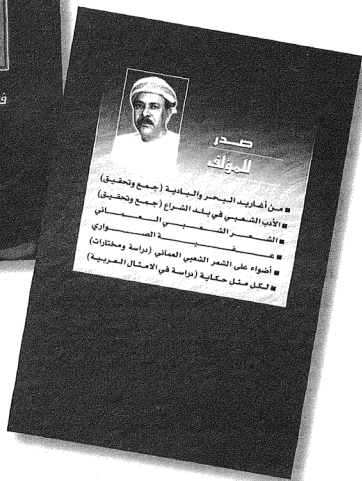 صدر
للمؤلف
■ من أغاريد البحر والبادية (جمع وتحقيق)
■ الأدب الشعبي في بلد الشراع (جمع وتحقيق)
■ الشعر الشعبي العماني
■ الصواري
■ أضواء على الشعر الشعبي العماني (دراسة ومختارات)
■ لكل مثل حكاية (دراسة في الامثال العربية)